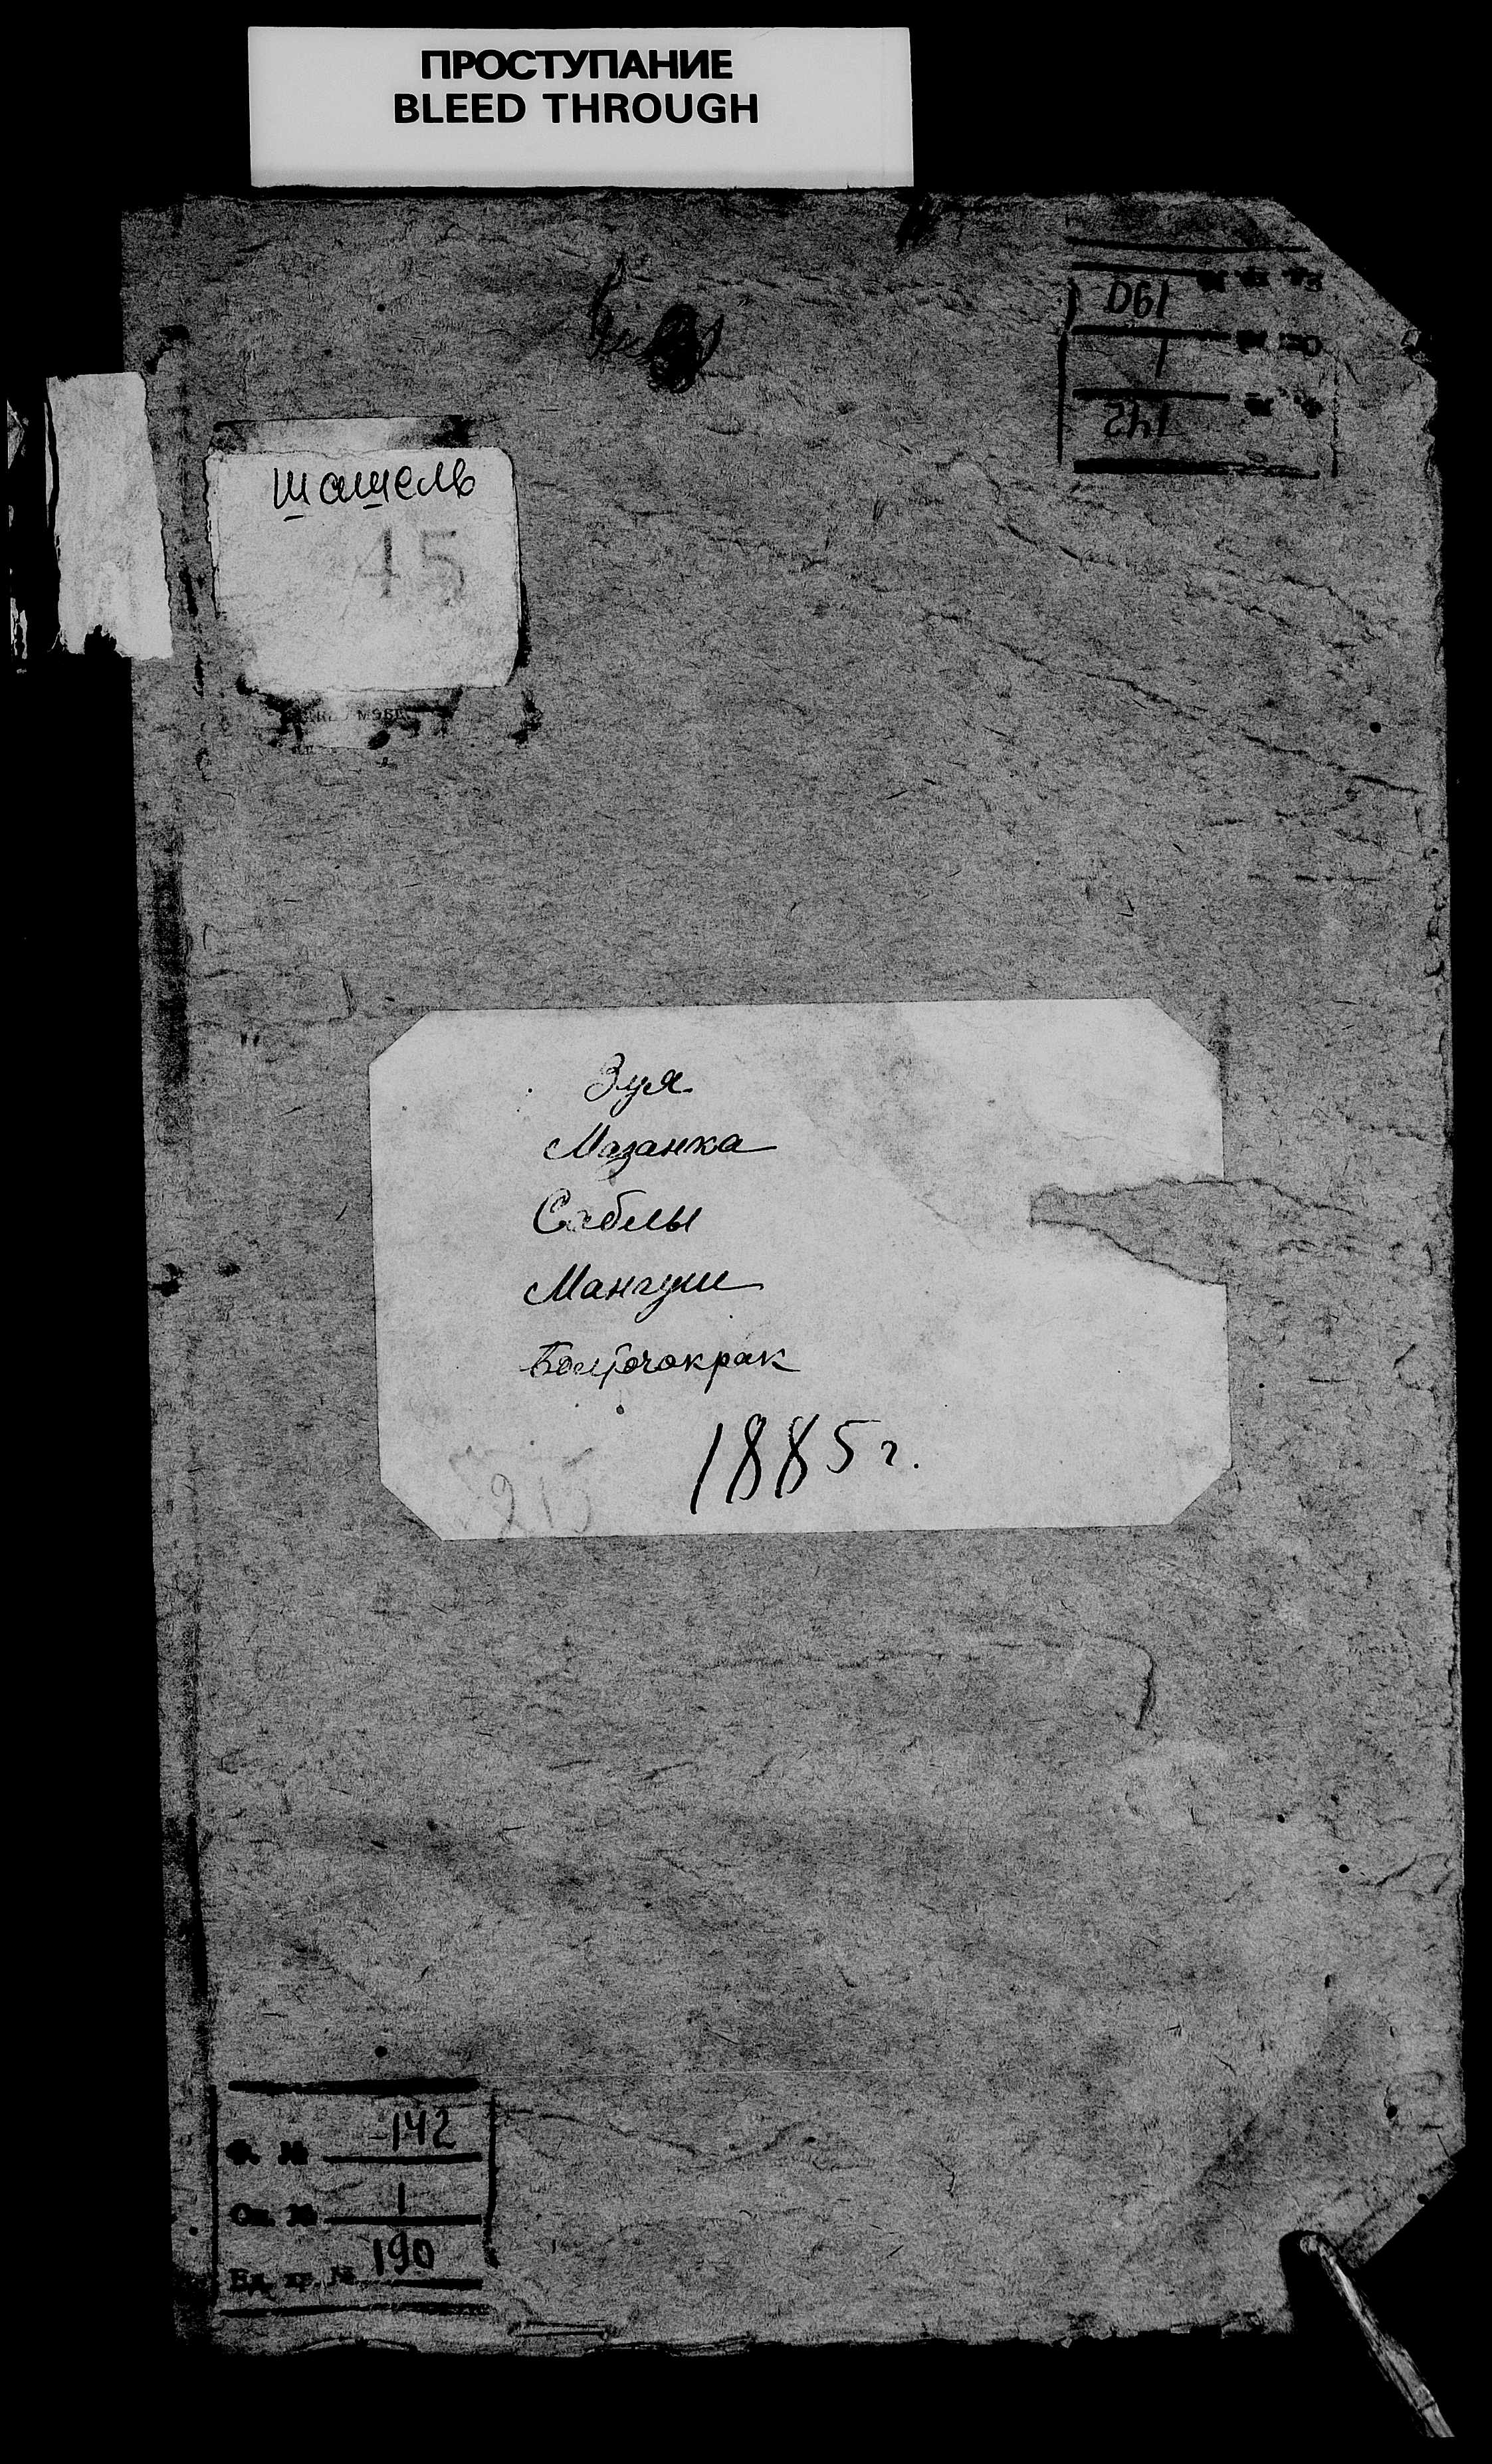 ПРОСТУПАНИЕ
BLEED THROUGH
190
1
142
шашель
45
Зуя
Мазанка
Саблы
Мангуш
Болточокрак
1885 г.
215
Ф. № 142
Оп. № 1
Ед. хр. № 190